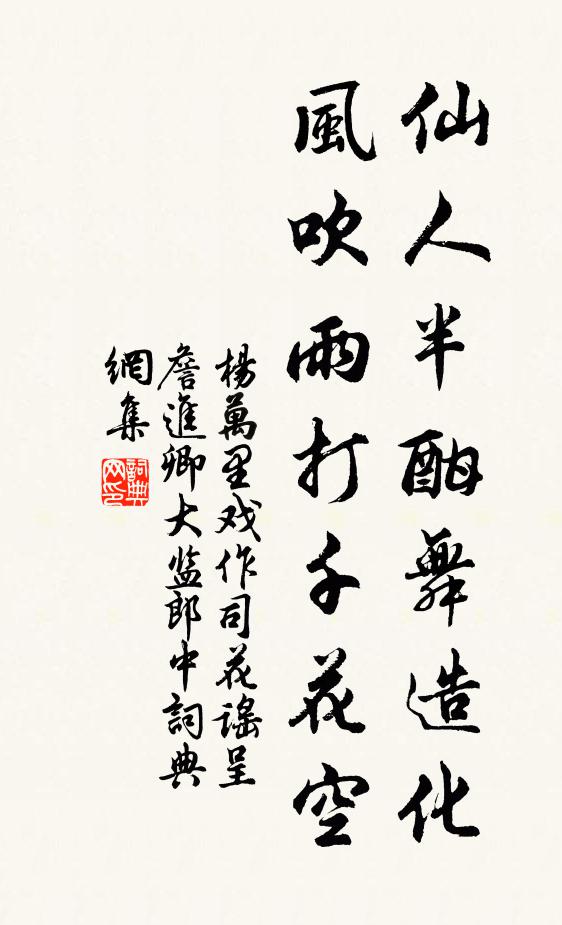 仙人半酣舞造化
風吹雨打千花空
楊萬里戏作司花謠呈
詹進卿大监郎中詞典
網集
詞典
网印